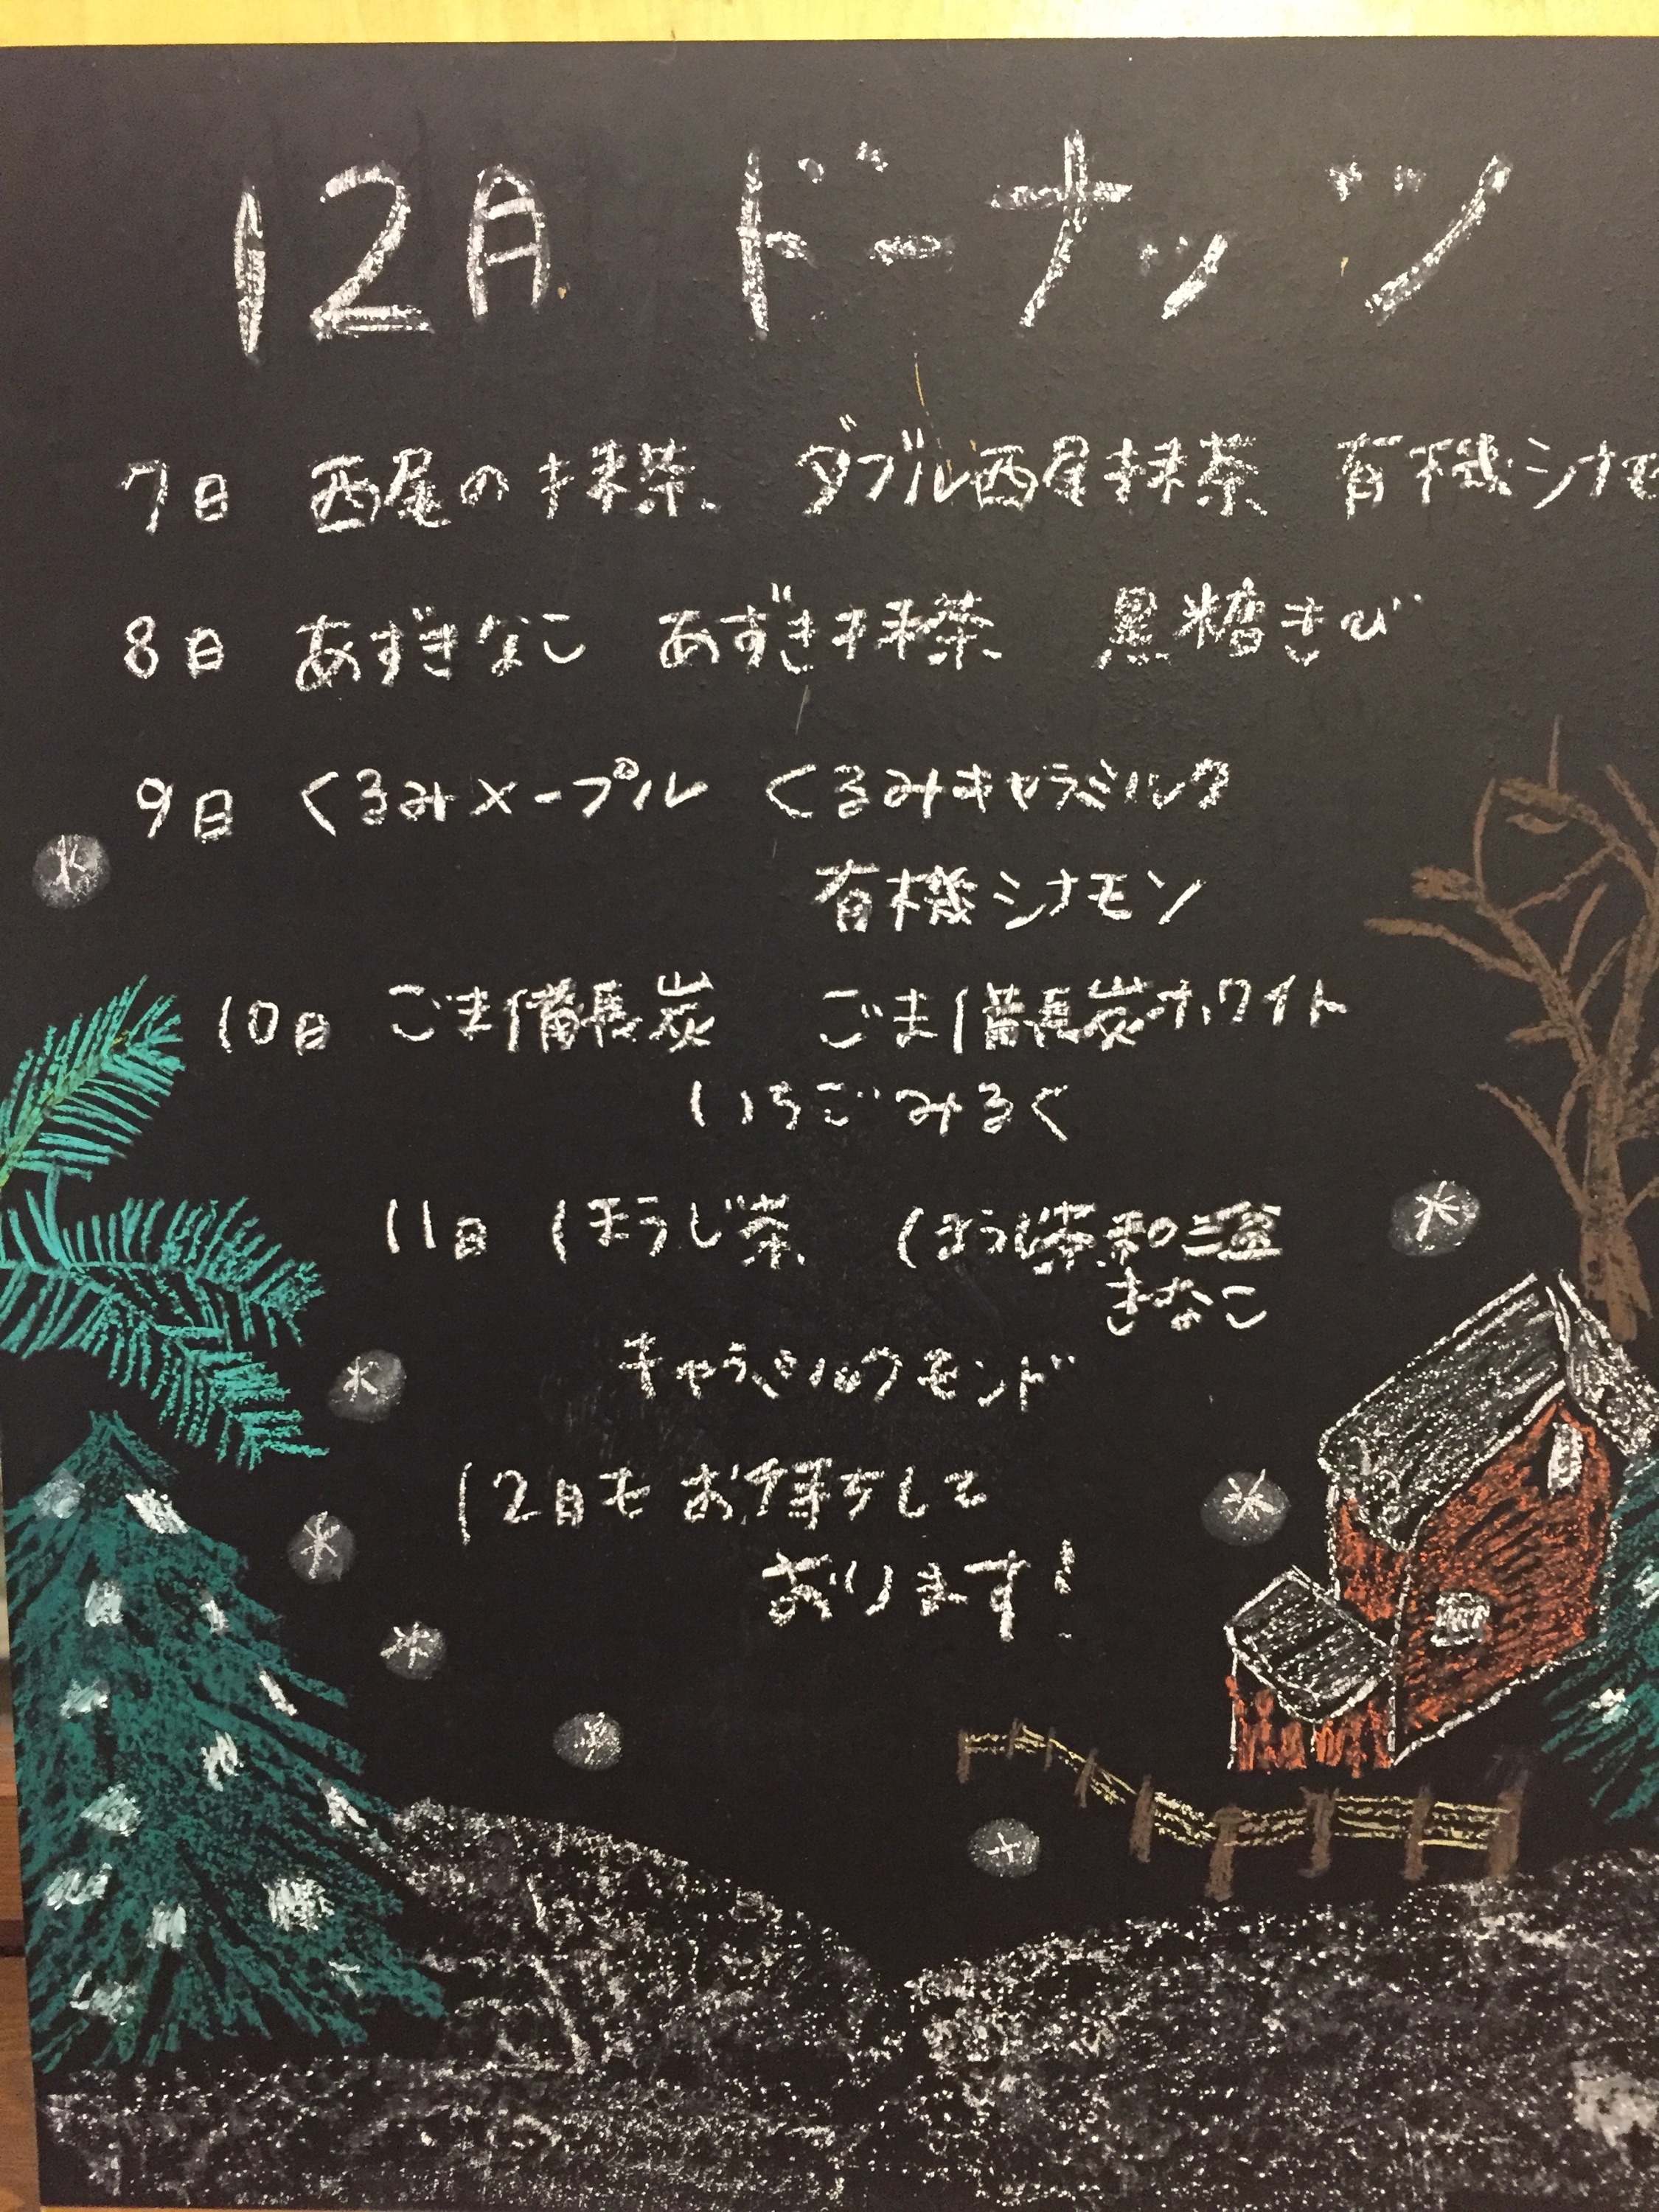 12月 ドーナッツ
7日 西尾の抹茶 ダブル西尾抹茶 有機シナモ
8日 あずきなこ あずき抹茶 黒糖きび
9日 くるみメープル くるみキャラミルク
有機シナモン
10日 ごま備長炭 ごま備長炭ホワイト
いちごみるく
11日 ほうじ茶 ほうじ茶和三盆
きなこ
キャラミルクモンド
12月もお待ちして
おります!